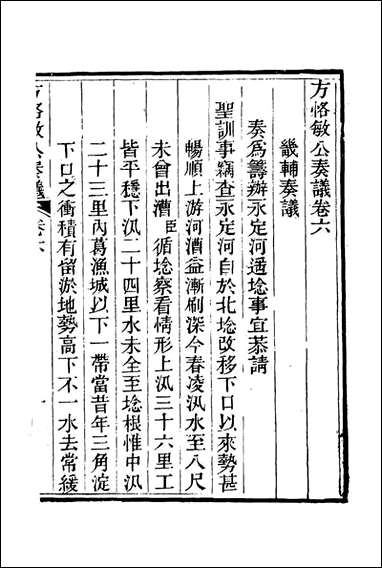 方恪敏公奏議卷六
畿輔奏議
奏爲籌辦永定河遥埝事宜恭請
聖訓事竊查永定河自於北埝改移下口以來勢甚
暢順上游河漕益漸刷深今春凌汛水至八尺
未曾出漕臣循埝察看情形上汛三十六里工
皆平穩下汛二十四里水未全至埝根惟中汛
二十三里內葛漁城以下一帶當昔年三角淀
下口之衝積有留淤地勢高下不一水去常緩
方恪敏公奏議
卷六
一